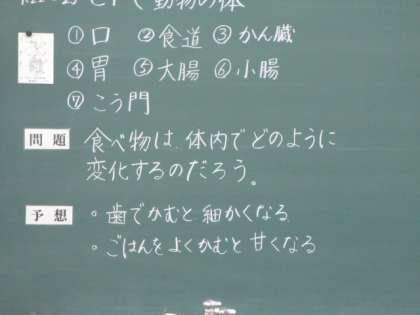 ヒトや動物の体
①口 ②食道 ③かん臓
④胃 ⑤大腸 ⑥小腸
⑦こう門
問題 食べ物は、体内でどのように
変化するのだろう。
予想 。歯でかむと細かくなる
。ごはんをよくかむと甘くなる